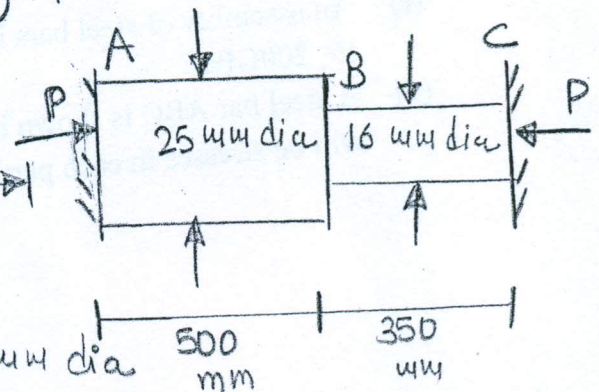 A
C
B
P
P
25 mm dia
16 mm dia
500
mm
350
mm
mm dia